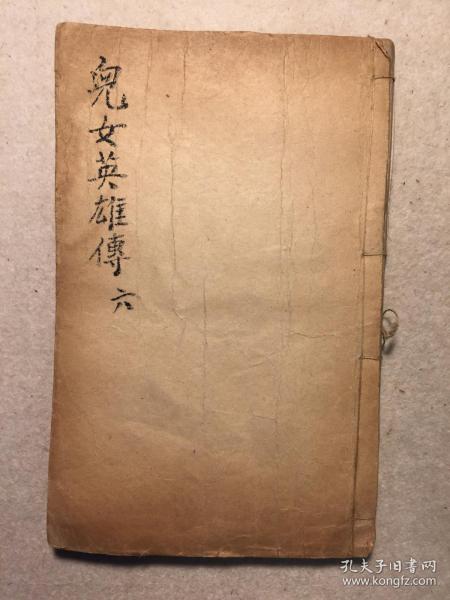 兒女英雄傳 六
孔夫子旧书网
www.kongfz.com